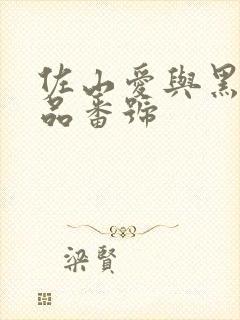 佐山愛與黑
品番號
梁賢